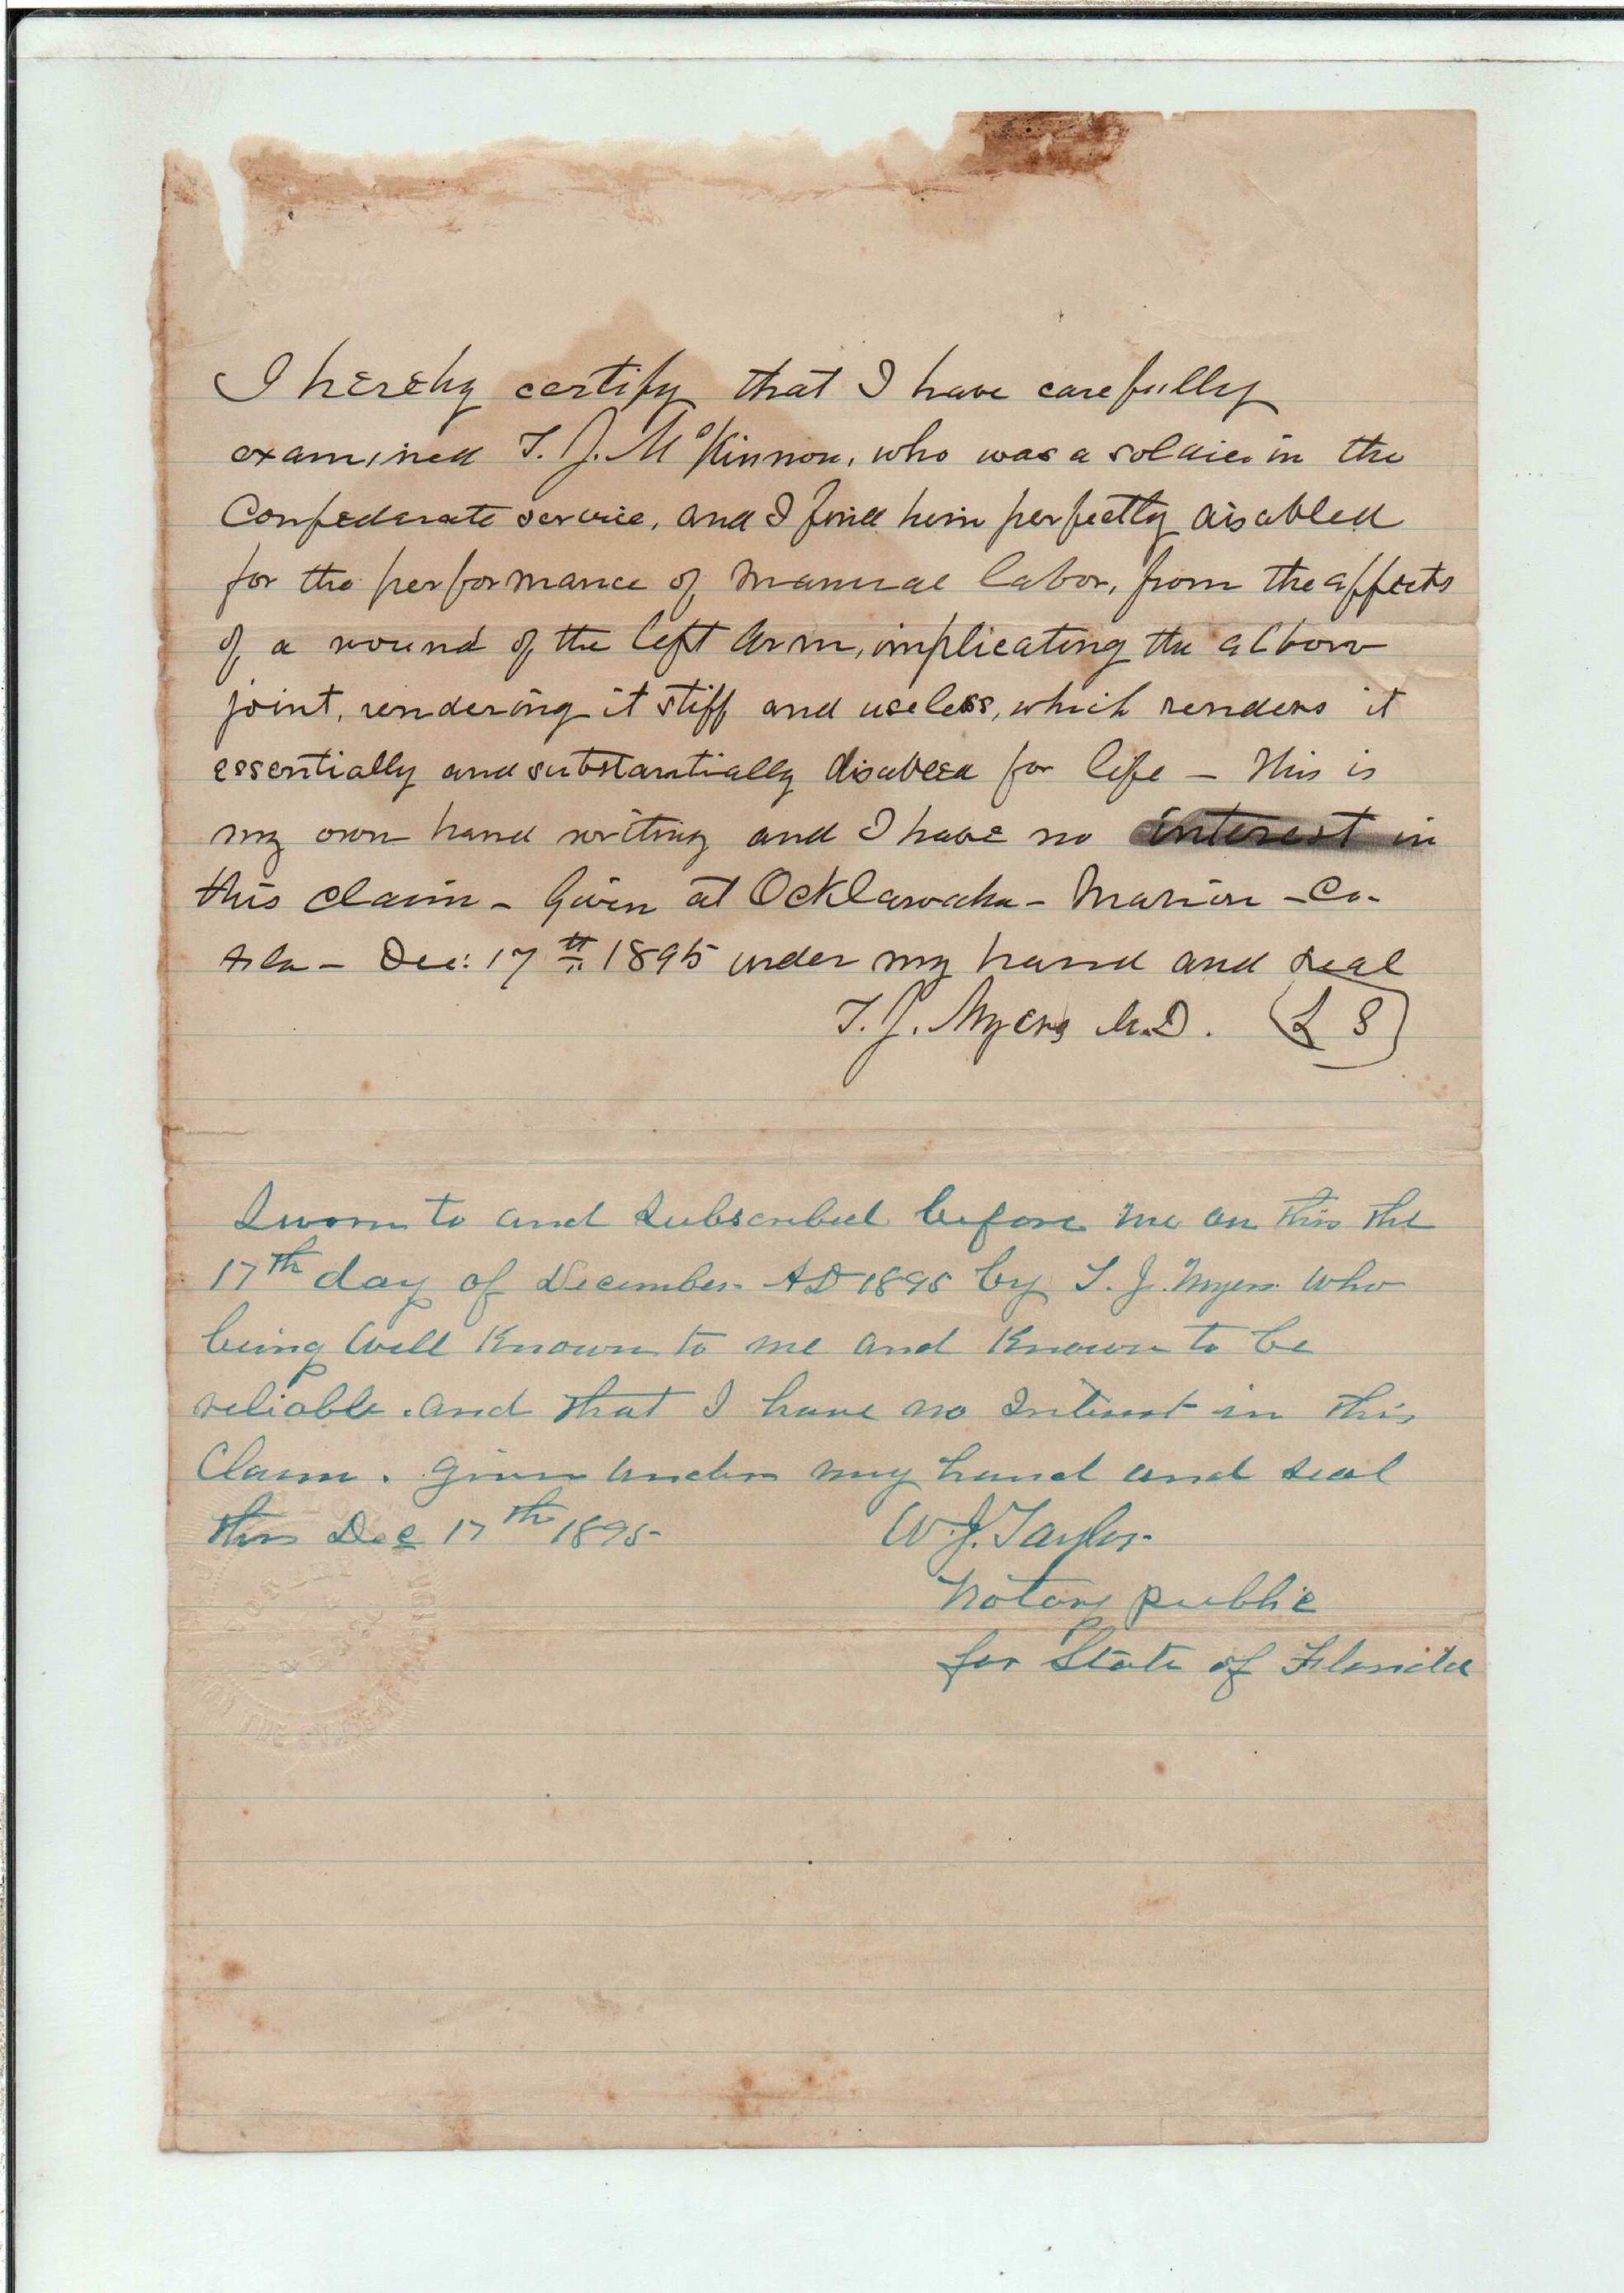 I hereby certify that I have carefully
examined T. J. McKinnon, who was a soldier in the
Confederate service, and I find him perfectly disabled
for the performance of manual labor, from the affects
of a wound of the left arm, implicating the elbow
joint, rendering it stiff and useless, which renders it
essentially and substantially disabled for life - This is
my own hand writing and I have no interest in
this claim - Given at Ocklawaha - Marion - Co-
Fla - Dec: 17th 1895 under my hand and seal
T. J. Myers M.D. (L S)
Sworn to and Subscribed before me on this the
17th day of December AD 1895 by T. J. Myers who
being well Known to me and Known to be
reliable. and that I have no Interest in this
Claim. given under my hand and seal
this Dec 17th 1895 W. J. Taylor
Notary public
for State of Florida